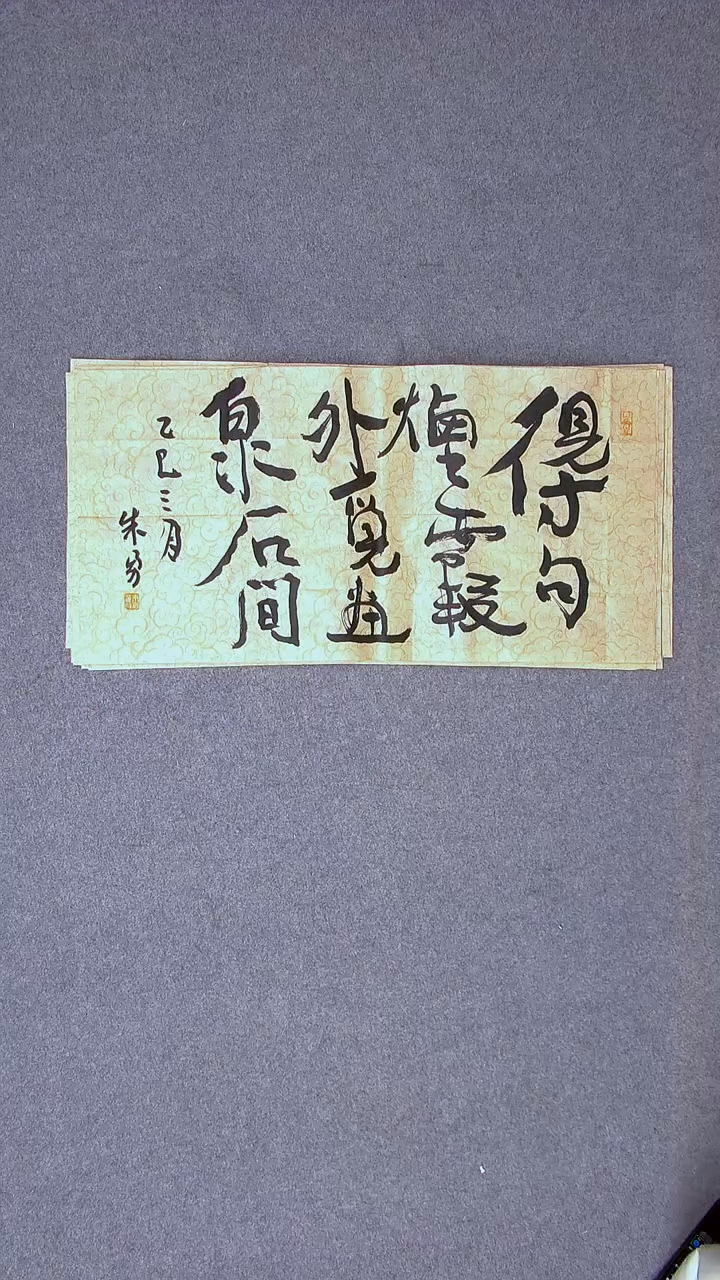 得句
煙霞
外覓
泉石間
乙巳三月
朱勇